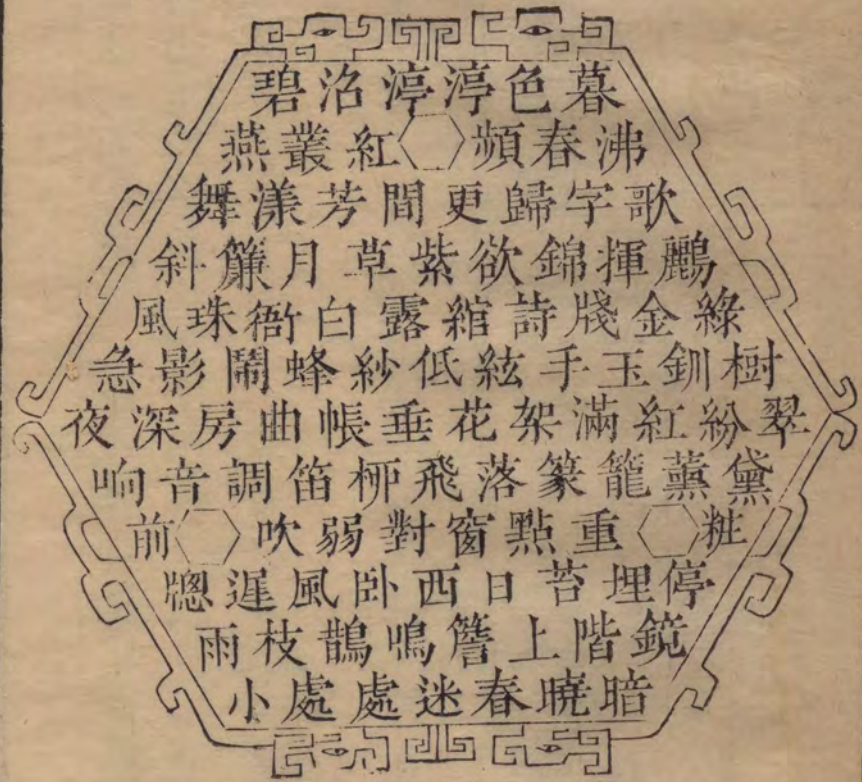 碧沼渟渟色暮
燕叢紅頻春沸
舞漾芳間更歸字歌
斜簾月草紫欲錦揮鸝
風珠衙白露綰詩牋金綠
急影鬧蜂紗低絃手玉釧樹
夜深房曲帳垂花架滿紅紛翠
响音調笛桺飛落篆籠薰黛
前吹弱對窗點重粧
牕遲風卧西日苔埋停
雨枝鵲鳴簷上階鏡
小處處迷春曉暗